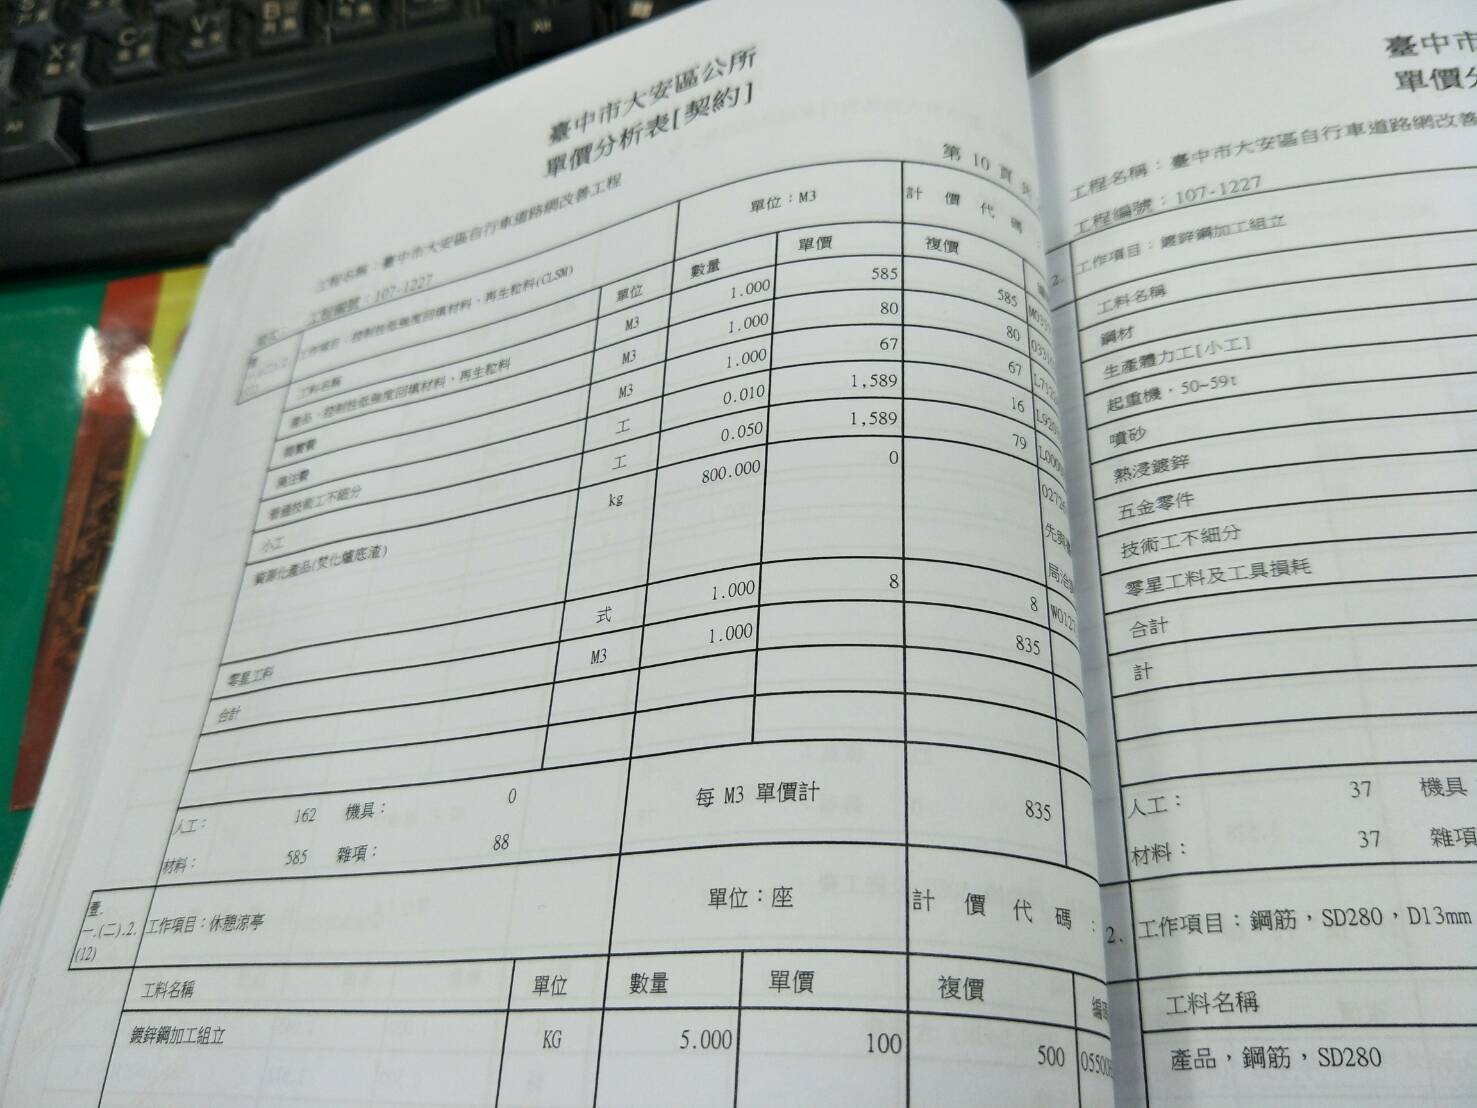 臺中市大安區公所
單價分析表[契約]
第 10 頁 共
工程名稱：臺中市大安區自行車道路網改善工程
工程編號：107-1227
工作項目：控制性低強度回填材料，再生粒料(CLSM) 單位：M3 計價代碼：
工料名稱 單位 數量 單價 複價
產品，控制性低強度回填材料，再生粒料 M3 1.000 585 585
M3 1.000 80 80
澆注費 M3 1.000 67 67
普通技術工不細分 工 0.010 1,589 16
小工 工 0.050 1,589 79
資源化產品(焚化爐底渣) kg 800.000 0
零星工料 式 1.000 8 8
合計 M3 1.000 835
人工： 162 機具： 0 每 M3 單價計 835
材料： 585 雜項： 88
壹.一.(二).2.(12) 工作項目：休憩涼亭 單位：座 計價代碼：
工料名稱 單位 數量 單價 複價
鍍鋅鋼加工組立 KG 5.000 100 500
臺中市
單價分
工程名稱：臺中市大安區自行車道路網改善
工程編號：107-1227
2. 工作項目：鍍鋅鋼加工組立
工料名稱
鋼材
生產體力工[小工]
起重機，50~59t
噴砂
熱浸鍍鋅
五金零件
技術工不細分
零星工料及工具損耗
合計
計
人工： 37 機具
材料： 37 雜項
2. 工作項目：鋼筋，SD280，D13mm
工料名稱
產品，鋼筋，SD280